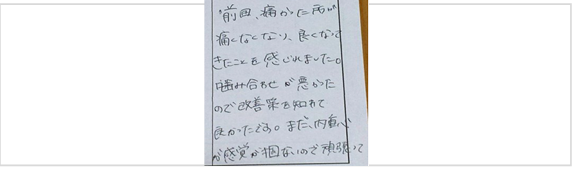 前回、痛かった所が
痛くなくなり、良くなって
きたことを感じれました。
噛み合わせが悪かった
ので改善策を知れて
良かったです。まだ、内重心
が感覚が掴ないので頑張って